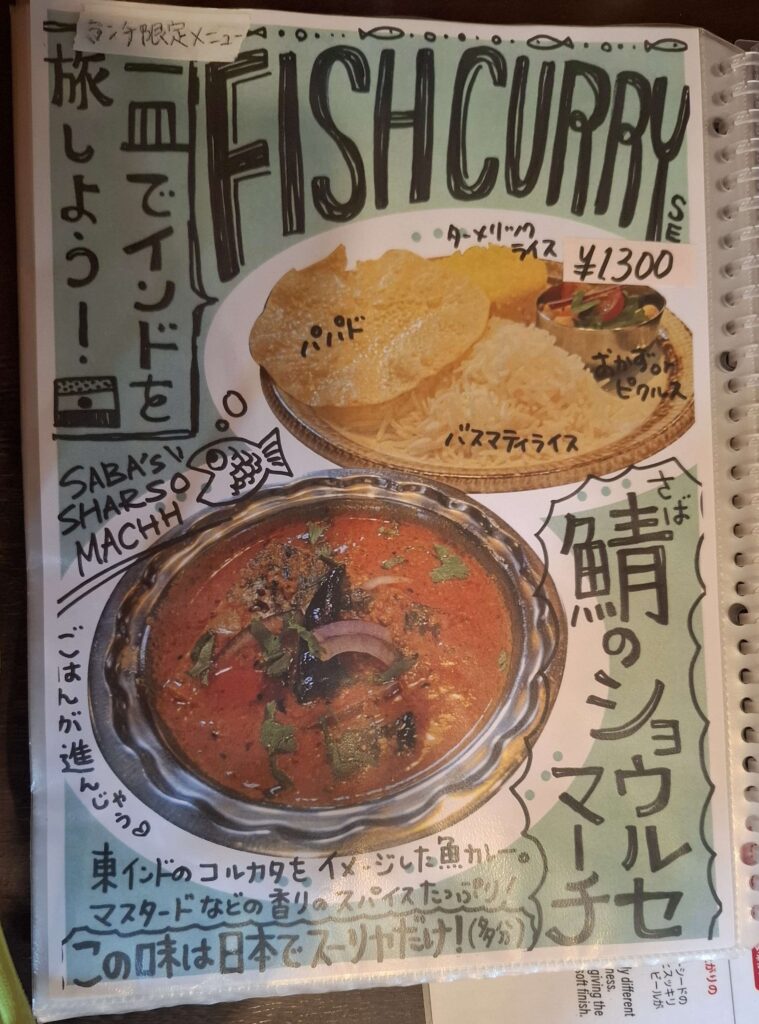 ランチ限定メニュー
一皿でインドを
旅しよう!
FISH CURRY SE
ターメリック
ライス
¥1300
パパド
おかずor
ピクルス
バスマティライス
SABA'S
SHARSO
MACHH
さば
鯖のショウルセ
マーチ
ごはんが進んじゃう
東インドのコルカタをイメージした魚カレー。
マスタードなどの香りのスパイスたっぷり!
この味は日本でスーリヤだけ!(多分)
がりの
シードの
スッキリ
ビールが
ly different
ness.
giving the
soft finish.